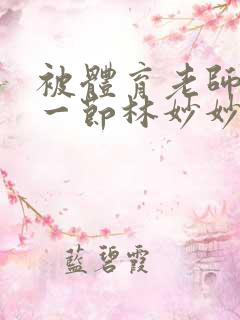 被體育老師
一節林妙妙
藍碧霞